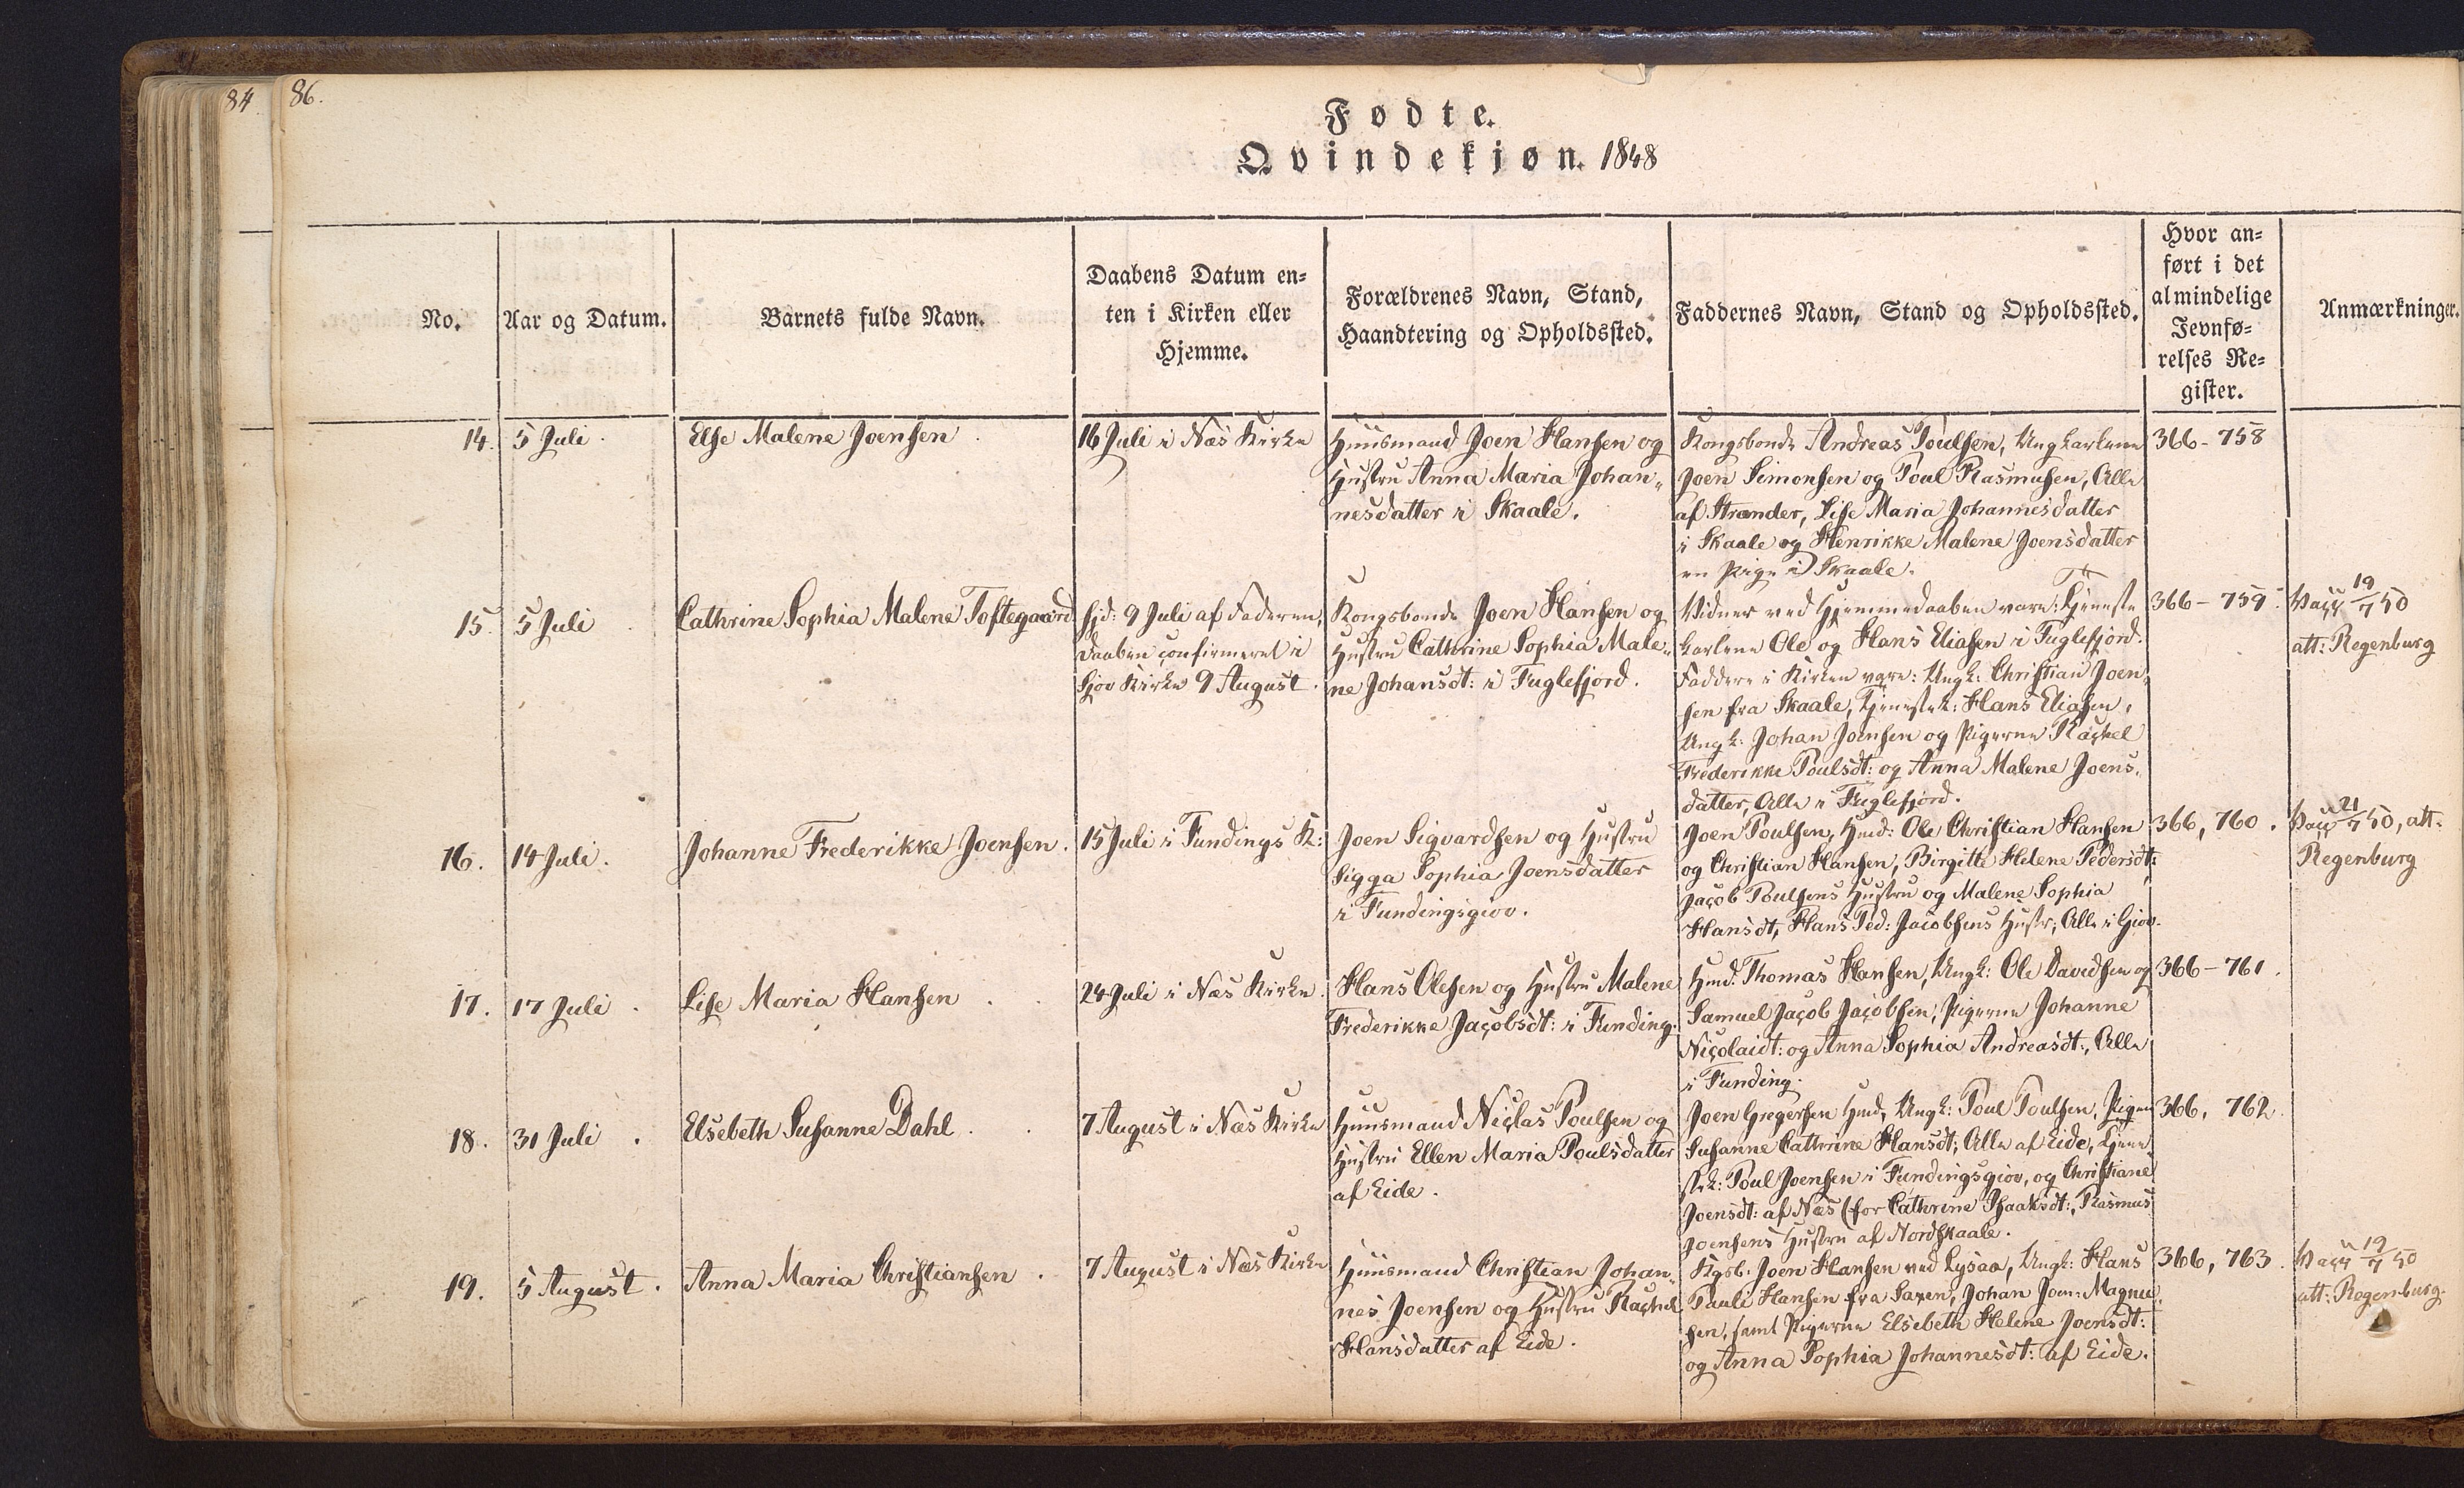 84
86.
Fødte.
Qvindekjøn. 1848
No.
Aar og Datum.
Barnets fulde Navn.
Daabens Datum en=
ten i Kirken eller
Hjemme.
Forældrenes Navn, Stand,
Haandtering og Opholdssted.
Faddernes Navn, Stand og Opholdssted.
Hvor an=
ført i det
almindelige
Jevnfø=
relses Re=
gister.
Anmærkninger.
14.
5 Juli.
Else Malene Joensen
16 Juli i Næs Kirke
Huusmand Joen Hansen og
Hustru Anna Maria Johan„
nesdatter i Skaale.
Kongsbonde Andreas Poulsen, Ungkarlene
Joen Simonsen og Poul Rasmusen, Alle
af Strænder, Lise Maria Johannesdatter
i Skaale og Henrikke Malene Joensdatter
en Pige i Skaale.
366 - 758
15.
5 Juli
Cathrine Sophia Malene Toftegaard
Hjd: 9 Juli af Faderen,
Daaben confirmeret i
Gjov Kirke 9 August.
Kongsbonde Joen Hansen og
Hustru Cathrine Sophia Male„
ne Johansdt: i Fuglefjord.
Vidner ved Hjemmedaaben vare: Tjeneste
karlene Ole og Hans Eliasen i Fuglefjord.
Faddere i Kirken vare: Ungk: Christian Joen„
sen fra Skaale, Tjenestek: Hans Eliasen,
Ungk: Johan Joensen og Pigerne Rachel
Frederikke Poulsdt: og Anna Malene Joens„
datter, Alle i Fuglefjord.
366 - 759.
Vacc 19/7 50
att: Regenburg
16.
14 Juli.
Johanne Frederikke Joensen.
15 Juli i Fundings K:
Joen Sigvardsen og Hustru
Sigga Sophia Joensdatter
i Fundingsgiov.
Joen Poulsen, Hmd: Ole Christian Hansen
og Christian Hansen, Birgitte Helene Pedersdt:
Jacob Poulsens Hustru og Malene Sophia
Hansdt, Hans Ped: Jacobsens Hustr; Alle i Giov.
366, 760.
Vacc 21/7 50, att:
Regenburg
17.
17 Juli.
Lise Maria Hansen
24 Juli i Næs Kirke.
Hans Olesen og Hustru Malene
Frederikke Jacobsdt: i Funding.
Hmd. Thomas Hansen, Ungk: Ole Davidsen og
Samuel Jacob Jacobsen, Pigerne Johanne
Nicolaidt: og Anna Sophia Andreasdt:, Alle
i Funding.
366 - 761.
18.
31 Juli.
Elsebeth Susanne Dahl.
7 August i Næs Kirke
Huusmand Niclas Poulsen og
Hustru Ellen Maria Poulsdatter
af Eide.
Joen Gregersen Hmd, Ungk: Poul Poulsen, Pigen
Susanne Cathrine Hansdt; Alle af Eide, Tjene„
stek: Poul Joensen i Fundingsgiov, og Christiane
Joensdt: af Næs (for Cathrine Isaaksdt:, Rasmus
Joensens Hustru af Nordskaale.
366, 762.
19.
5 August.
Anna Maria Christiansen.
7 August i Næs Kirke
Huusmand Christian Johan„
nes Joensen og Hustru Rachel
Hansdatter af Eide.
Kgsb: Joen Hansen ved Lysaa, Ungk: Hans
Pauli Hansen fra Saxen, Johan Joen: Magnu„
sen, samt Pigerne Elsebeth Helene Joensdt:
og Anna Sophia Johannesdt: af Eide.
366, 763.
Vacc 19/7 50
att: Regenburg.